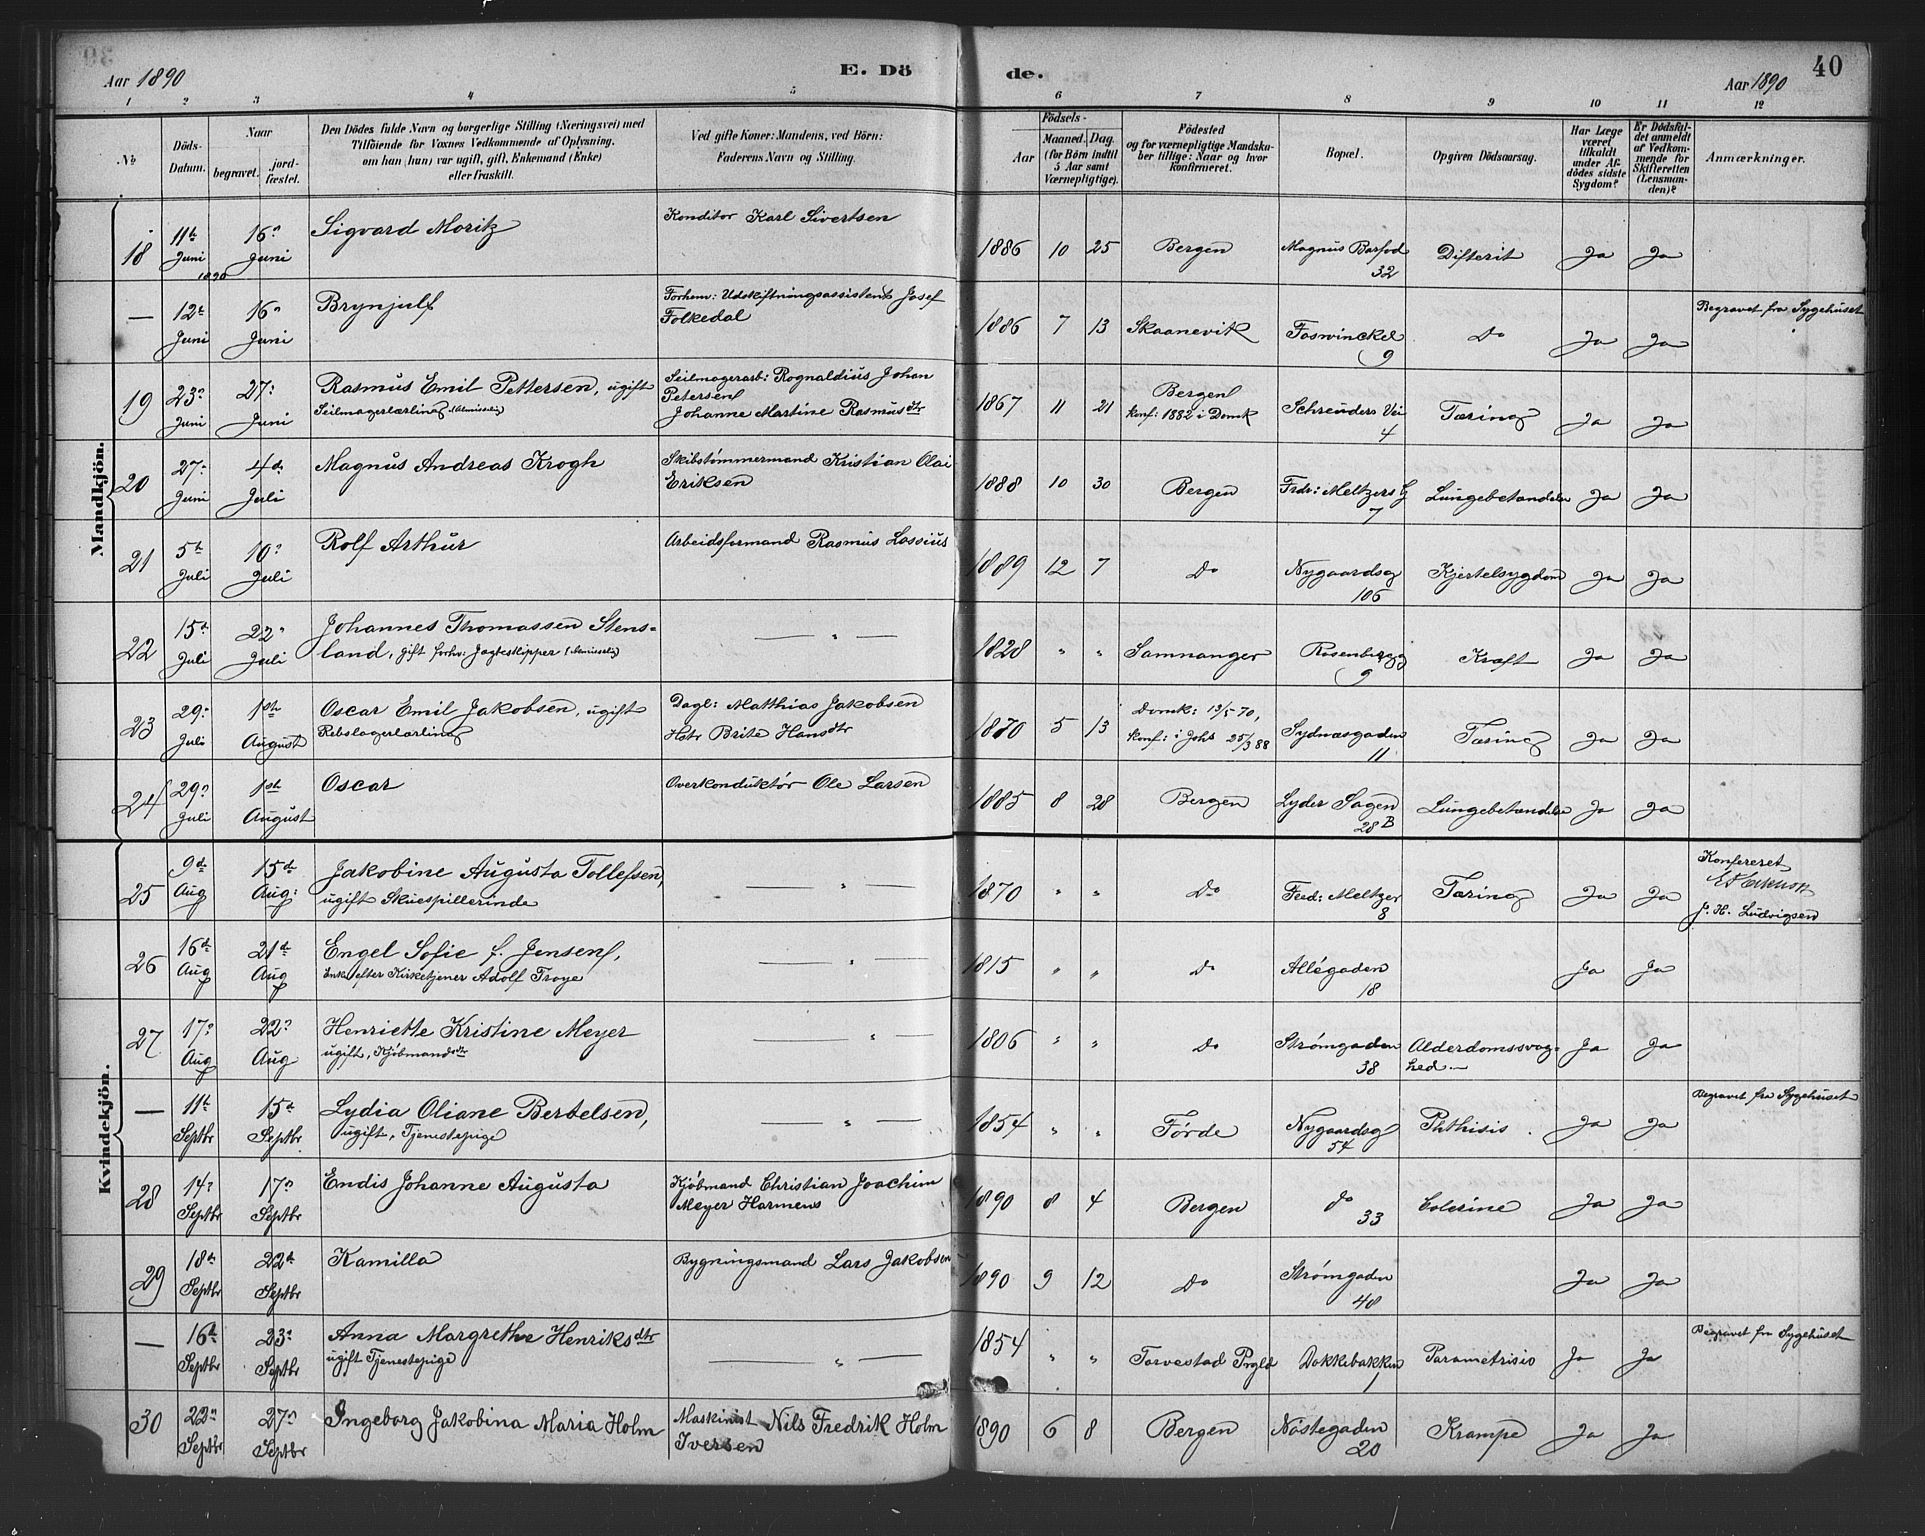 Aar 1890
E. Døde.
Aar 1890
40
1 2 3 4 5 6 7 8 9 10 11 12
№
Döds-Datum.
Naar begravet. jordfæstet.
Den Dödes fulde Navn og borgerlige Stilling (Næringsvei) med
Tilföiende for Voxnes Vedkommende af Oplysning,
om han (hun) var ugift, gift, Enkemand (Enke)
eller fraskilt.
Ved gifte Koner: Mandens, ved Börn:
Faderens Navn og Stilling.
Födsels-
Aar Maaned. Dag.
(for Börn indtil
5 Aar samt
Værnepligtige).
Födested
og for værnepligtige Mandska-
ber tillige: Naar og hvor
konfirmeret.
Bopæl.
Opgiven Dödsaarsag.
Har Læge
været
tilkaldt
under Af-
dödes sidste
Sygdom?
Er Dödsfal-
det anmeldt
af Vedkom-
mende for
Skifteretten
(Lensman-
den)?
Anmærkninger.
Mandkjön.
18 11te Juni 1890 16de Juni Sigvard Moritz Konditor Karl Sivertsen 1886 10 25 Bergen Magnus Barfod 32 Difterit Ja Ja
— 12te Juni 16de Juni Brynjulf Forhem: Udskiftningsassistent Josef
Folkedal 1886 7 13 Skaanevik Foswinckel 9 Do Ja Ja Begravet fra Sygehuset
19 23de Juni 27de Juni Rasmus Emil Pettersen, ugift Seilmagerarb: Rognaldius Johan
Seilmagerlærling (Almisselig) Petersen
Johanne Martine Rasmusdtr 1867 11 21 Bergen
konf: 1882 i Domk Schreuders Vei 4 Tæring Ja Ja
20 27de Juni 4de Juli Magnus Andreas Krogh Skibstømmermand Kristian Olai
Eriksen 1888 10 30 Bergen Frdr: Meltzers G 7 Lungebetændelse Ja Ja
21 5te Juli 10de Juli Rolf Arthur Arbeidsformand Rasmus Lossius 1889 12 7 Do Nygaardsg 106 Kjertelsygdom Ja Ja
22 15de Juli 22de Juli Johannes Thomassen Stens-
land, gift forhv: Jagteskipper (Almisselig) — " — 1828 " " Samnanger Rosenbergg 9 Kræft Ja Ja
23 29de Juli 1ste August Oscar Emil Jakobsen, ugift Dagl: Matthias Jakobsen
Rebslagerlærling Hstr Brite Hansdtr 1870 5 13 Domk: 13/5 70,
konf: i Johs 25/3 88 Sydnæsgaden 11 Tæring Ja Ja
24 29de Juli 1ste August Oscar Overkonduktør Ole Larsen 1885 8 28 Bergen Lyder Sagen 28 B Lungebetændelse Ja Ja
Kvindekjön.
25 9de Aug 15de Aug: Jakobine Augusta Tollefsen,
ugift Skuespillerinde — " — 1870 " " Do Fred: Meltzer 8 Tæring Ja Ja Konfereret
J. H. Ludvigsen
26 16de Aug 21de Aug Engel Sofie f. Jensen,
Enke efter Kirketjener Adolf Troye — " — 1815 " " Do Allégaden 18 Ja Ja
27 17de Aug 22de Aug Henriette Kristine Meyer
ugift, Kjøbmandsdtr — " — 1806 " " Do Strømgaden 38 Alderdomssvag-
hed Ja Ja
— 11te Septbr 15de Septbr Lydia Oliane Bertelsen,
ugift, Tjenestepige — " — 1854 " " Førde Nygaardsg 54 Phthisis. Ja Ja Begravet fra Sygehuset
28 14de Septbr 17de Septbr Endis Johanne Augusta Kjøbmand Christian Joachim
Meyer Harmens 1890 8 4 Bergen do 33 Colerine Ja Ja
29 18de Septbr 22de Septbr Kamilla Bygningsmand Lars Jakobsen 1890 9 12 Do Strømgaden 48 Ja Ja
— 16de Septbr 23de Septbr Anna Margrethe Henriksdtr
ugift Tjenestepige — " — 1854 " " Torvestad Prgld Dokkebakken 1 Parametrisis Ja Ja Begravet fra Sygehuset
30 22de Septbr 27de Septbr Ingeborg Jakobina Maria Holm Maskinist Nils Fredrik Holm
Iversen 1890 6 8 Bergen Nøstegaden 20 Krampe Ja Ja